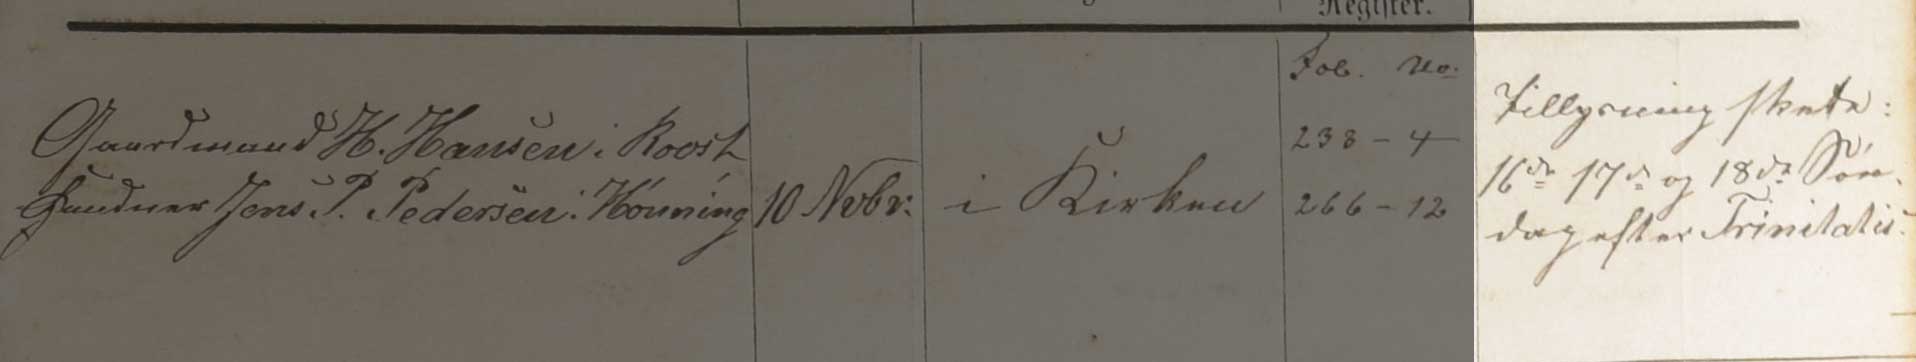 Register.
Fol. No.
Gaardmand H. Hansen i Roost
233 - 4
Jens P. Pedersen i Hönning
10 Novbr.
i Kirken
266 - 12
Tillysning skete:
16de 17de og 18de Søn-
dag efter Trinitatis.